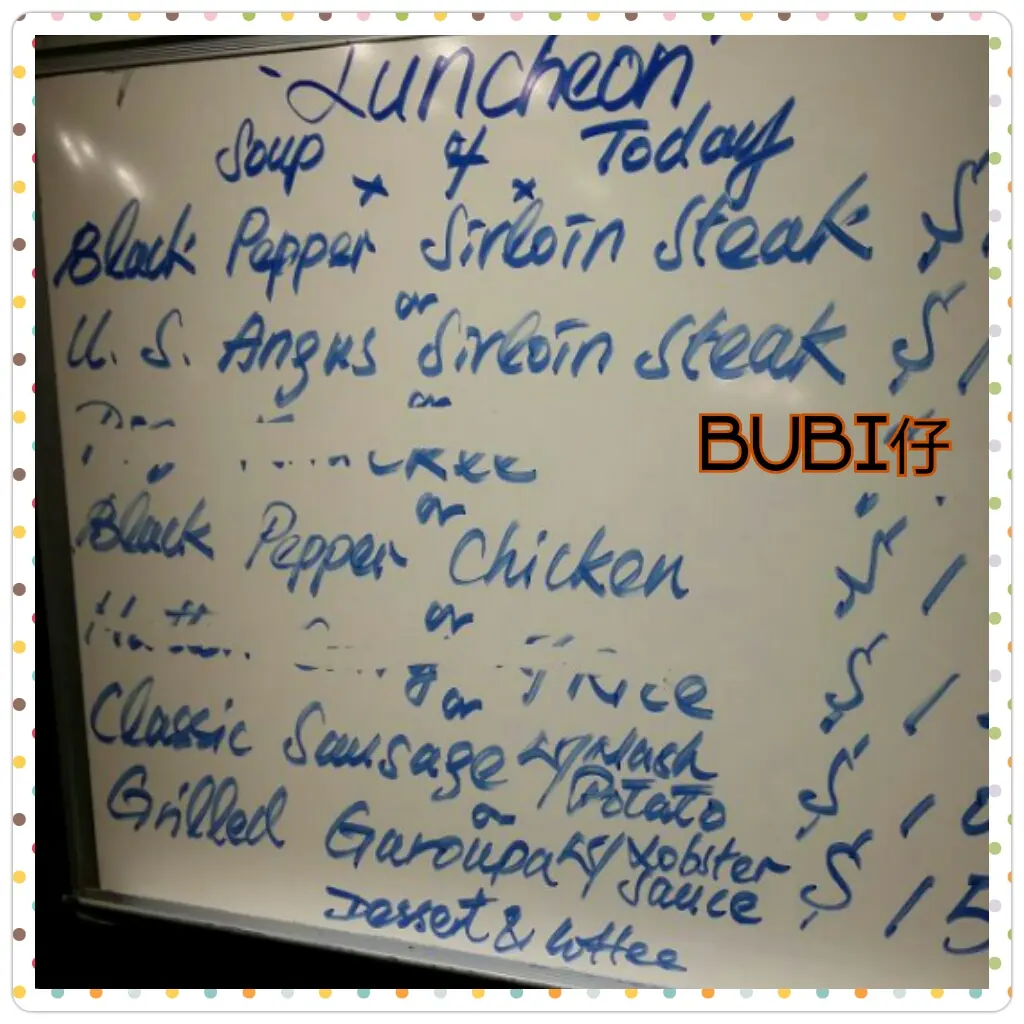 -Luncheon-
Soup of Today
x x
Black Pepper Sirloin Steak $
or
U. S. Angus Sirloin Steak $ 1
or
BUBI仔
or
Black Pepper Chicken $ 1
or
Rice $ 1
or
Classic Sausage w/ Mash Potato $ 1
or
Grilled Garoupa w/ Lobster Sauce $ 15
Dessert & Coffee